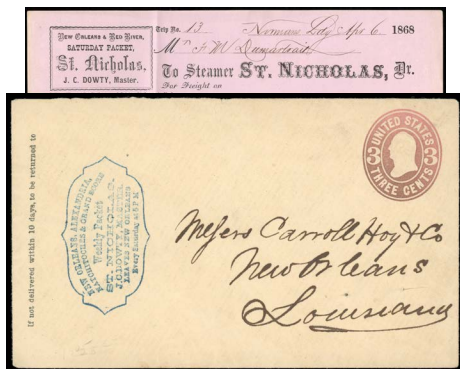 NEW ORLEANS & RED RIVER,
SATURDAY PACKET,
St. Nicholas.
J. C. DOWTY, Master.
Trip No. 13 Normans Ldg Apr 6 1868
Mr
To Steamer ST. NICHOLAS, Dr.
For Freight on
If not delivered within 10 days, to be returned to
NEW ORLEANS, ALEXANDRIA,
NATCHITOCHES & GRAND ECORE
Weekly Packet
ST. NICHOLAS.
J.C. DOWTY, MASTER.
LEAVES NEW ORLEANS
Every Saturday at 5 P M
UNITED STATES
3 3
THREE CENTS
Messrs Carroll Hoy & Co
New Orleans
Louisiana